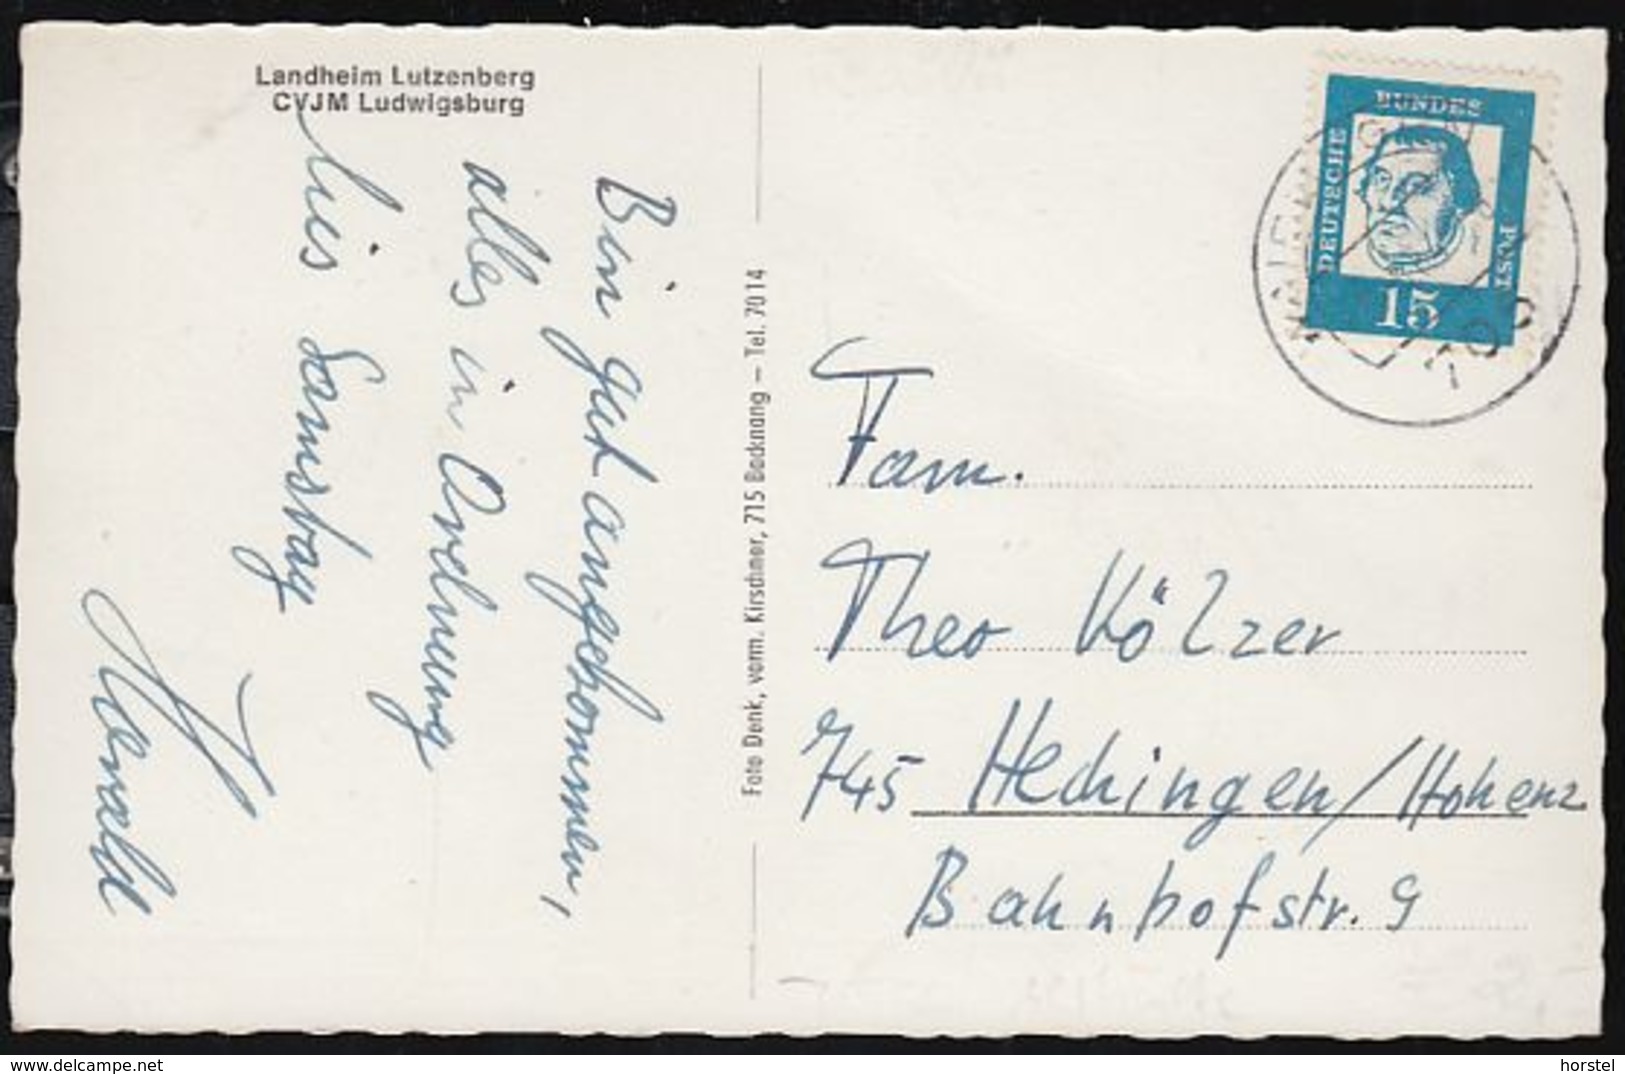 Landheim Lutzenberg
CVJM Ludwigsburg
Bin gut angekommen,
alles in Ordnung
bis Samstag
Harald
Foto Denk, vorm. Kirschner, 715 Backnang – Tel. 7014
DEUTSCHE BUNDES POST
15
Fam.
Theo Kölzer
745 Hechingen/Hohenz
Bahnhofstr. 9
www.delcampe.net
horstel